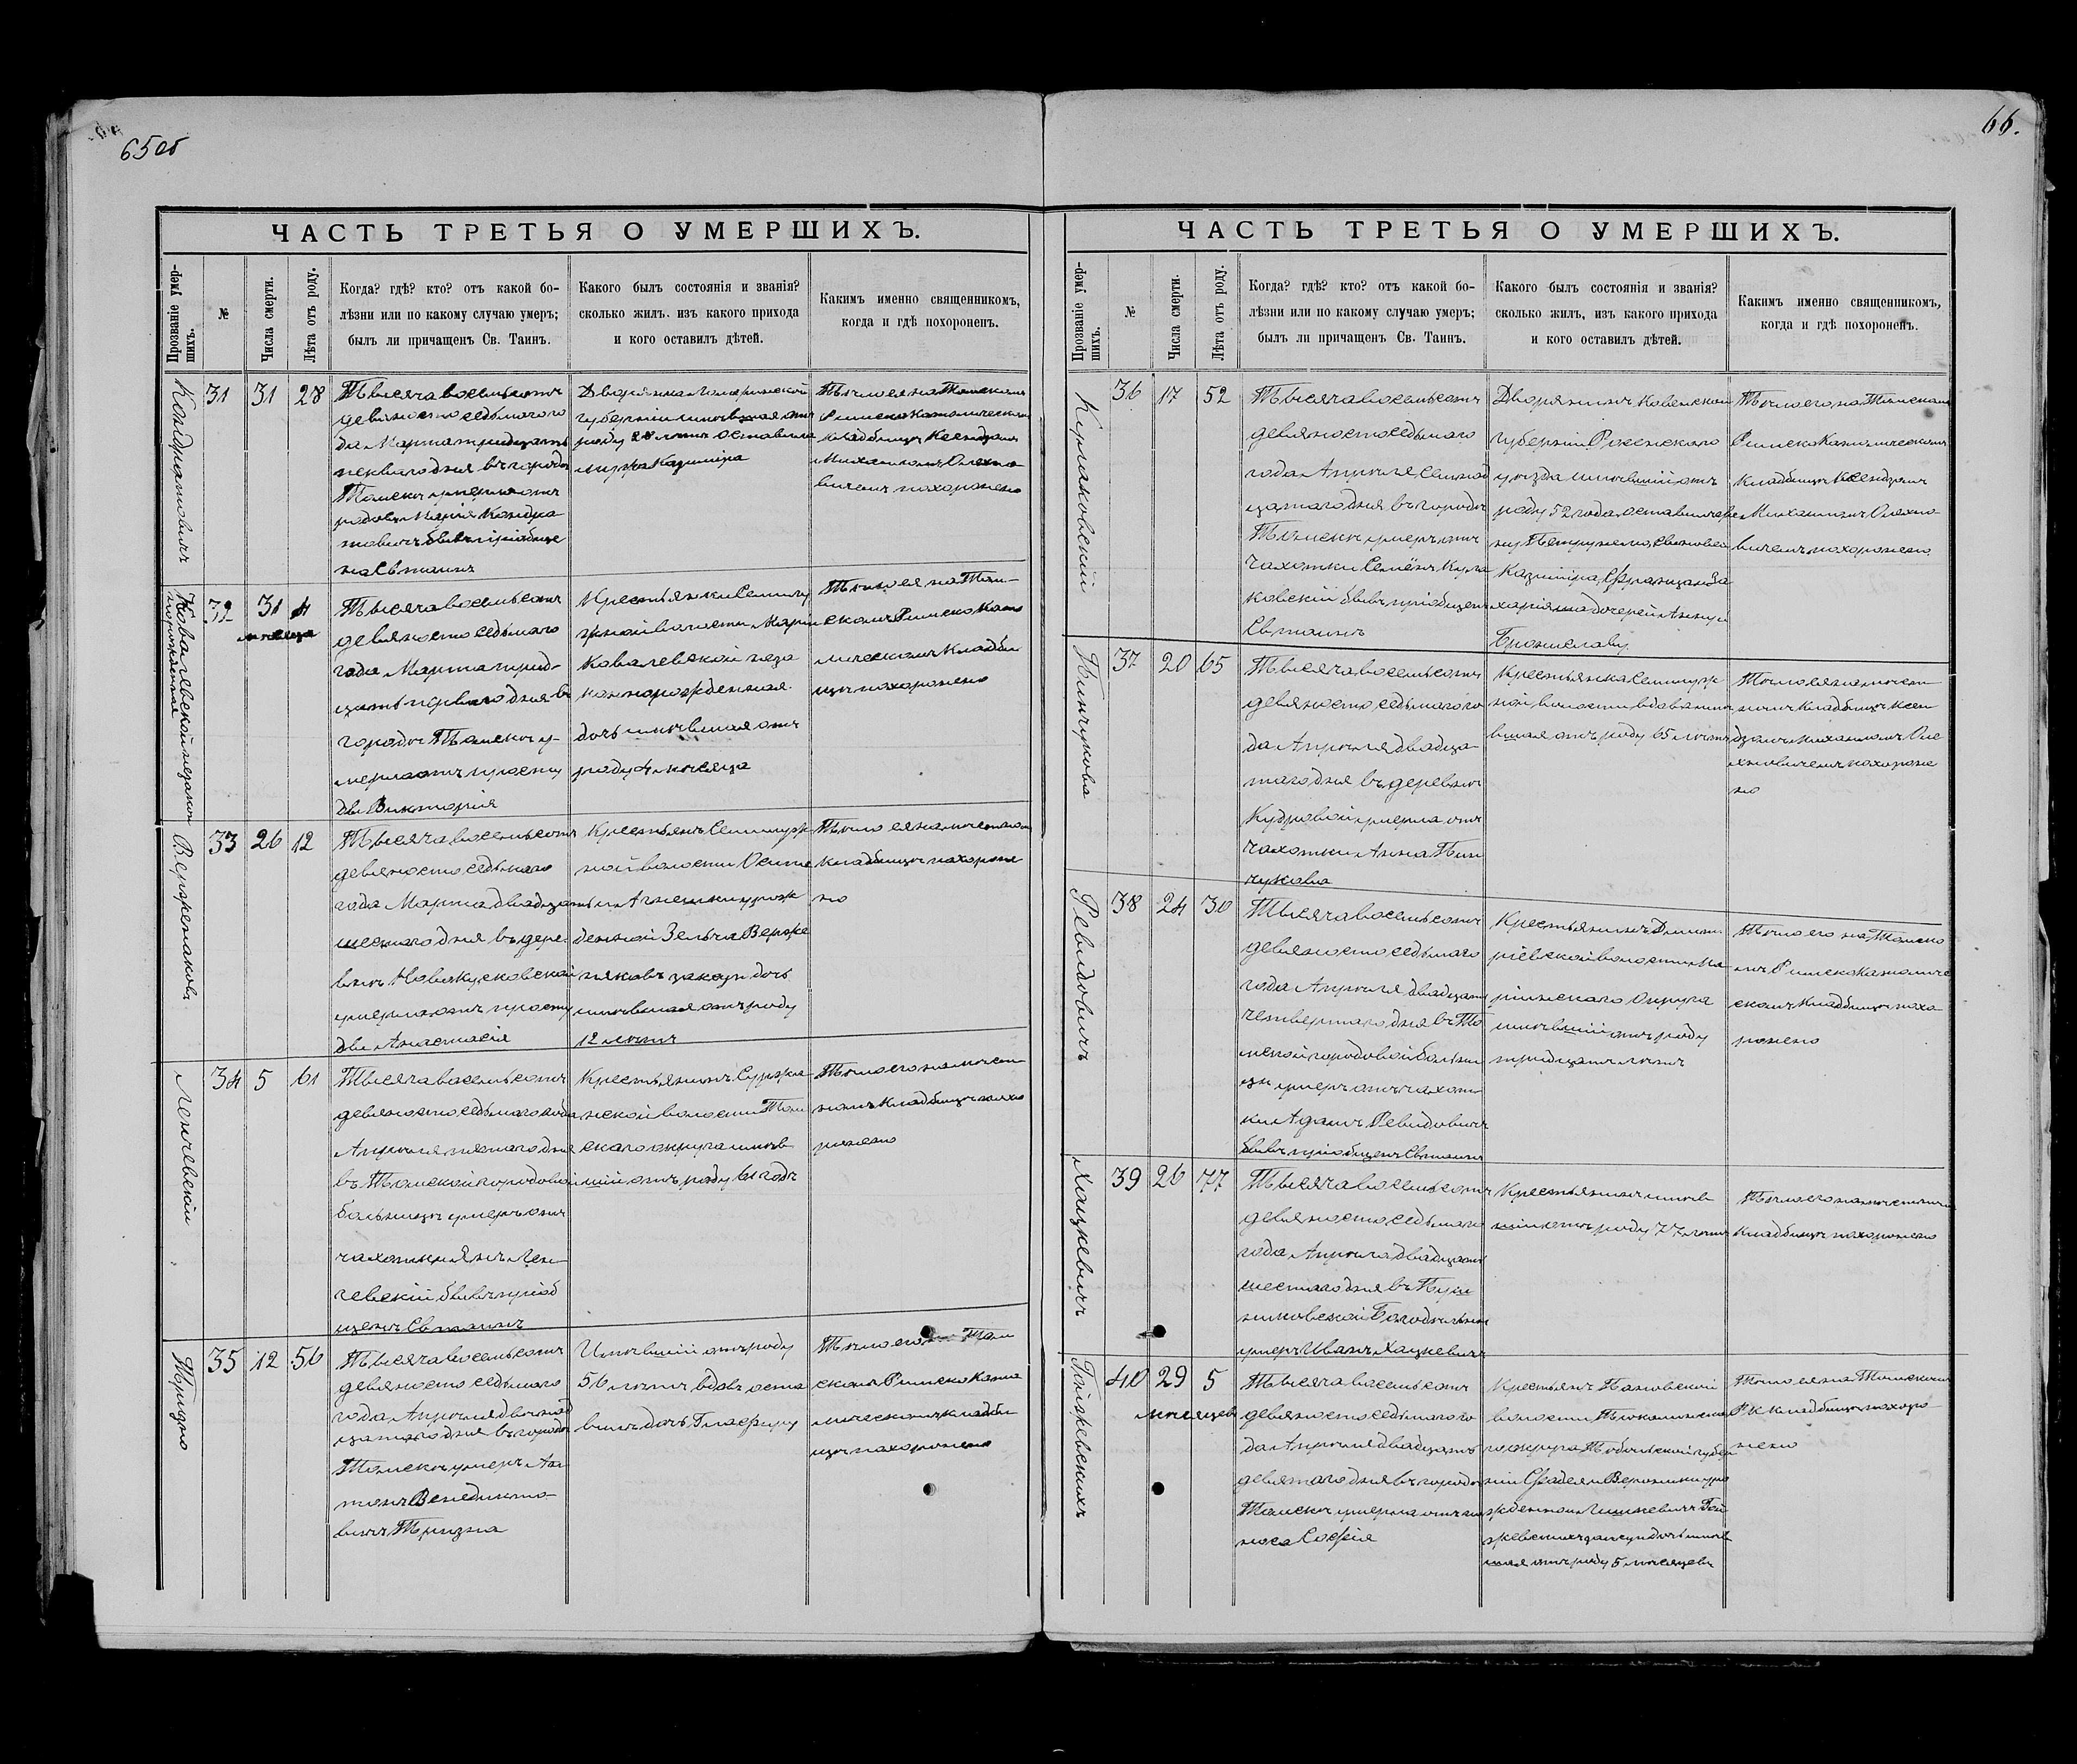 65 об
ЧАСТЬ ТРЕТЬЯ О УМЕРШИХЪ.
Прозваніе умер-
шихъ.
№
Числа смерти.
Лѣта отъ роду.
Когда? гдѣ? кто? отъ какой бо-
лѣзни или по какому случаю умеръ;
былъ ли причащенъ Св. Таинъ.
Какого былъ состоянія и званія?
сколько жилъ. изъ какого прихода
и кого оставилъ дѣтей.
Какимъ именно священникомъ,
когда и гдѣ похороненъ.
Кондратовичъ
31
31
28
Тысяча восемьсотъ
девяносто седьмого го
да Марта тридцать
перваго дня въ городѣ
Томскѣ умерла отъ
родовъ Марія Кондра
товичъ бывъ пріобще
на Св таинъ
Дворянка
губерніи имѣвшая отъ
роду 28 лѣтъ оставила
мужа Казиміра
Тѣло ея на Томскомъ
Римско Католическомъ
кладбищѣ Ксендзомъ
Михаиломъ Олехно
вичемъ похоронено
Ковалевской незакон
норожденная
32
31
4
мѣсяца
Тысяча восемьсотъ
девяносто седьмого
года Марта трид-
цать перваго дня въ
городѣ Томскѣ у-
мерла отъ просту
ды Викторія
Крестьянки Семилу
жной волости Маріи
Ковалевской неза
коннорожденная
дочь имѣвшая отъ
роду 4 мѣсяца
Тѣло ея на Том-
скомъ Римско Като
лическомъ Кладби
щѣ похоронено
Вержепяковъ
33
26
12
Тысяча восемьсотъ
девяносто седьмого
года Марта двадцать
шестого дня въ дере-
внѣ Ново Кусковской
умерла отъ просту
ды Анастасія
Крестьянъ Семилуж
ной волости Осипа
и Агнешки урож
денной Зельчъ Верже
пяковъ закон дочь
имѣвшая отъ роду
12 лѣтъ
Тѣло ея на мѣстномъ
кладбищѣ похороне
но
Ленчевскій
34
5
61
Тысяча восемьсотъ
девяносто седьмого года
Апрѣля пятаго дня
въ Томской городовой
больницѣ умеръ отъ
чахотки Янъ Лен
чевскій бывъ пріоб
щенъ Св таинъ
Крестьянинъ
нской волости Том
скаго округа имѣв
шій отъ роду 61 годъ
Тѣло его на мѣст
номъ кладбищѣ похо
ронено
Тризно
35
12
56
Тысяча восемьсотъ
девяносто седьмого
года Апрѣля двѣнад
цатаго дня въ городѣ
Томскѣ умеръ Ан
тонъ Бенедикто-
вичъ Тризна
Имѣвшій отъ роду
56 лѣтъ вдовъ оста
вилъ дочь Глафиру
Тѣло его на Том
скомъ Римско Като
лическомъ кладби
щѣ похоронено
66.
ЧАСТЬ ТРЕТЬЯ О УМЕРШИХЪ.
Прозваніе умер-
шихъ.
№
Числа смерти.
Лѣта отъ роду.
Когда? гдѣ? кто? отъ какой бо-
лѣзни или по какому случаю умеръ;
былъ ли причащенъ Св. Таинъ.
Какого былъ состоянія и званія?
сколько жилъ, изъ какого прихода
и кого оставилъ дѣтей.
Какимъ именно священникомъ,
когда и гдѣ похороненъ.
36
17
52
Тысяча восемьсотъ
девяносто седьмого
года Апрѣля семнад
цатаго дня въ городѣ
Томскѣ умеръ отъ
чахотки Семёнъ
ковскій бывъ пріобщенъ
Св таинъ
Дворянинъ Ковенской
губерніи Россіенскаго
уѣзда имѣвшій отъ
роду 52 года оставилъ же
ну Петрунелю, сыновей
Казиміра, Францa и За
харія и дочерей Анну и
Брониславу
Тѣло его на Томскомъ
Римско Католическомъ
кладбищѣ ксендзомъ
Михаиломъ Олехно-
вичемъ похоронено
Пинчукова
37
20
65
Тысяча восемьсотъ
девяносто седьмого го
да Апрѣля двадца
таго дня въ деревнѣ
Кудровой умерла отъ
чахотки Анна Пин
чукова
Крестьянка Семилуж
ной волости вдова имѣ
вшая отъ роду 65 лѣтъ
Тѣло ея на мѣст
номъ кладбищѣ ксен
дзомъ Михаиломъ Оле
хновичемъ похороне
но
Ревидовичъ
38
24
30
Тысяча восемьсотъ
девяносто седьмого
года Апрѣля двадцать
четвертаго дня въ То
мской городовой больни
цѣ умеръ отъ чахот
ки Адамъ Ревидовичъ
бывъ пріобщенъ Св таинъ
Крестьянинъ Дмит
ріевской волости Ма
ріинскаго Округа
имѣвшій отъ роду
тридцать лѣтъ
Тѣло его на Томско
мъ Римско Католиче
скомъ кладбищѣ похо
ронено
Хацкевичъ
39
26
77
Тысяча восемьсотъ
девяносто седьмого
года Апрѣля двадцать
шестого дня въ Пуш
никовской Богодѣльни
умеръ Иванъ Хацкевичъ
Крестьянинъ имѣв
шій отъ роду 77 лѣтъ
Тѣло его на мѣстномъ
кладбищѣ похоронено
40
29
5
мѣсяцевъ
Тысяча восемьсотъ
девяносто седьмого го
да Апрѣля двадцать
девятаго дня въ городѣ
Томскѣ умерла отъ
София
Крестьянъ
волости Тюкалинска
го округа Тобольской губер
ніи Фадея и Вероники уро
жденной
законн дочь имѣв
шая отъ роду 5 мѣсяцевъ
Тѣло ея на Томскомъ
Р К кладбищѣ похоро
нено